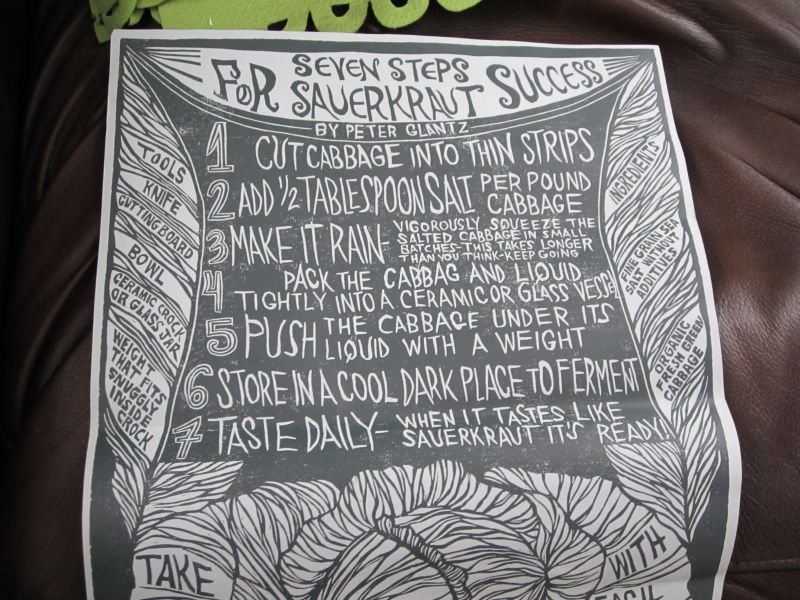 SEVEN STEPS
FOR SAUERKRAUT SUCCESS
BY PETER GLANTZ
1 CUT CABBAGE INTO THIN STRIPS
2 ADD 1/2 TABLESPOON SALT PER POUND
CABBAGE
3 MAKE IT RAIN- VIGOROUSLY SQUEEZE THE
SALTED CABBAGE IN SMALL
BATCHES-THIS TAKES LONGER
THAN YOU THINK-KEEP GOING
4 PACK THE CABBAG AND LIQUID
TIGHTLY INTO A CERAMIC OR GLASS VESSEL
5 PUSH THE CABBAGE UNDER ITS
LIQUID WITH A WEIGHT
6 STORE IN A COOL DARK PLACE TO FERMENT
7 TASTE DAILY- WHEN IT TASTES LIKE
SAUERKRAUT IT'S READY!
TOOLS
KNIFE
CUTTING BOARD
BOWL
CERAMIC CROCK
OR GLASS JAR
WEIGHT
THAT FITS
SNUGGLY
INSIDE
CROCK
INGREDIENTS
FINE GRAIN SEA
SALT WITHOUT
ADDITIVES
ORGANIC
FRESH GREEN
CABBAGE
TAKE
WITH